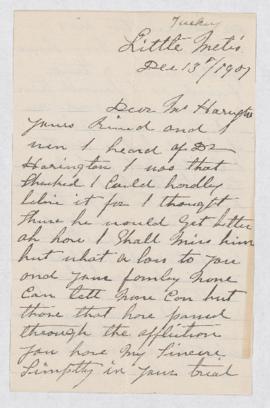 Tuckey
Little Metis
Dec 13th/1907
Dear Mr Harington
yours rived and
wen I heard of Dr
Harington I was that
shucked I Could hardley
belive it for I thought
shure he would Get better
oh how I Shall Miss him
but what a loss to you
and your famley None
Can tell None Can but
those that have passed
through the affliction
you have My Sincere
Simpthy in your trial